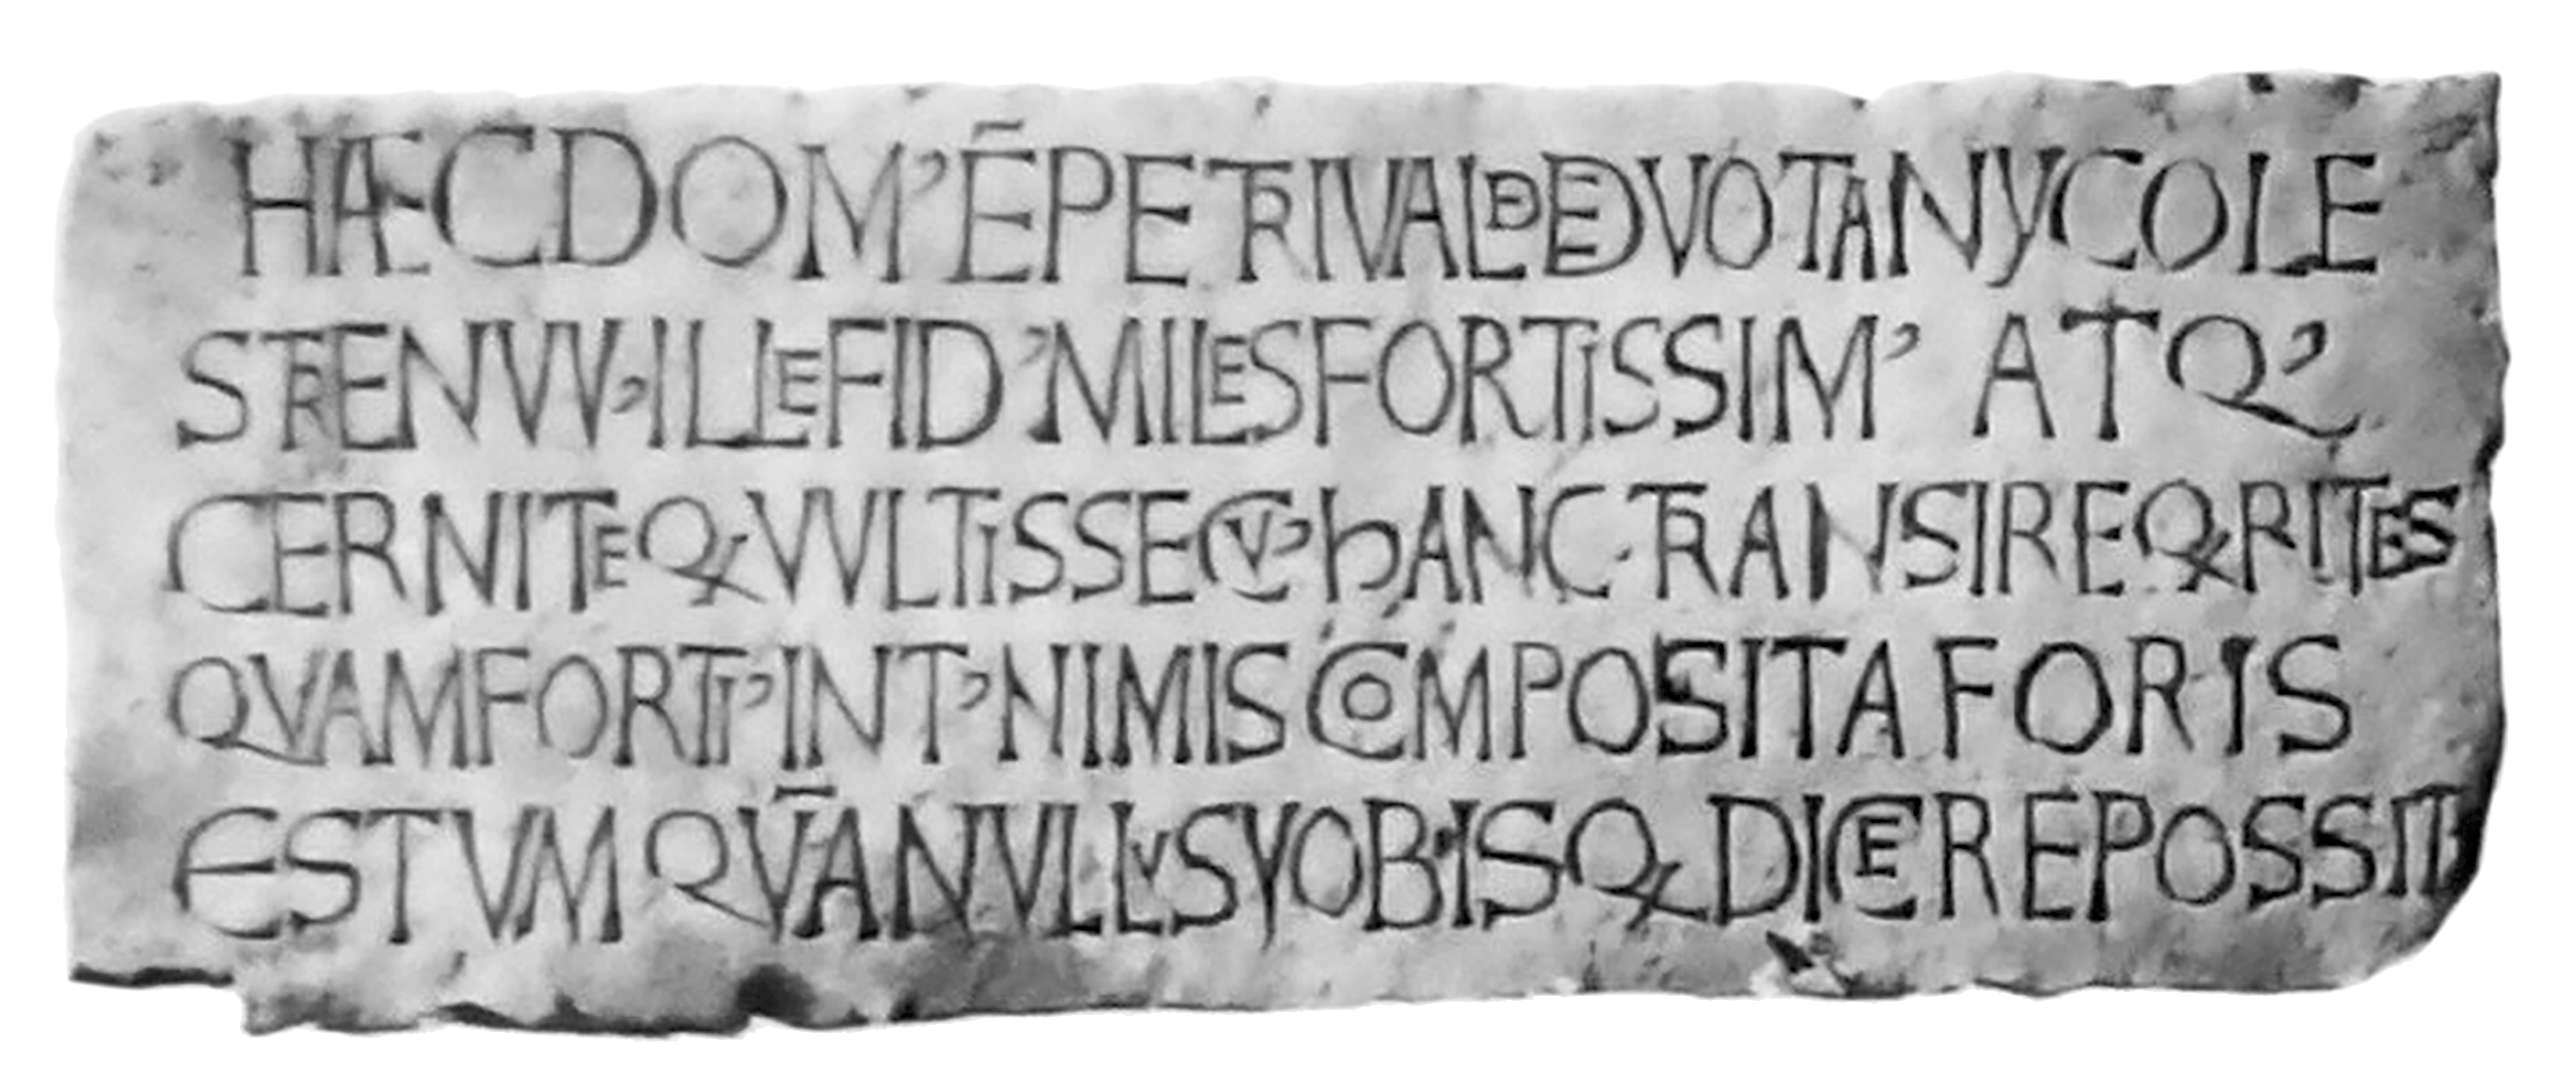 HÆCDOM’ĒPETRIVALDEDEVOTANYCOLE
STRENVV’ILLEFID’MILESFORTISSIM’ ATQ’
CERNITEQVVLTISSECV’hANC·TRANSIREQRITES
QVAMFORTI’INT’NIMISCOMPOSITAFORIS
ESTVMQV̄ANVLLVSVOBISQDICEREPOSSIT